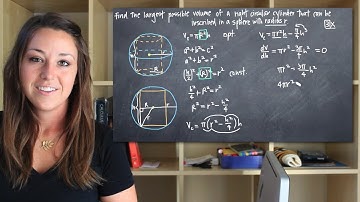 Find the largest possible volume of a right circular cylinder that can be
inscribed in a sphere with radius r
V₂ = πR²h opt.
a² + b² = c²
a² + b² = r²
(h/2)² + (R)² = r² const.
h²/4 + R² = r²
R² = r² - h²/4
V₂ = π(r² - h²/4)h
V₂ = πr²h - π/4 h³
dV/dh = πr² - 3π/4 h² = 0
πr² = 3π/4 h²
4πr² =